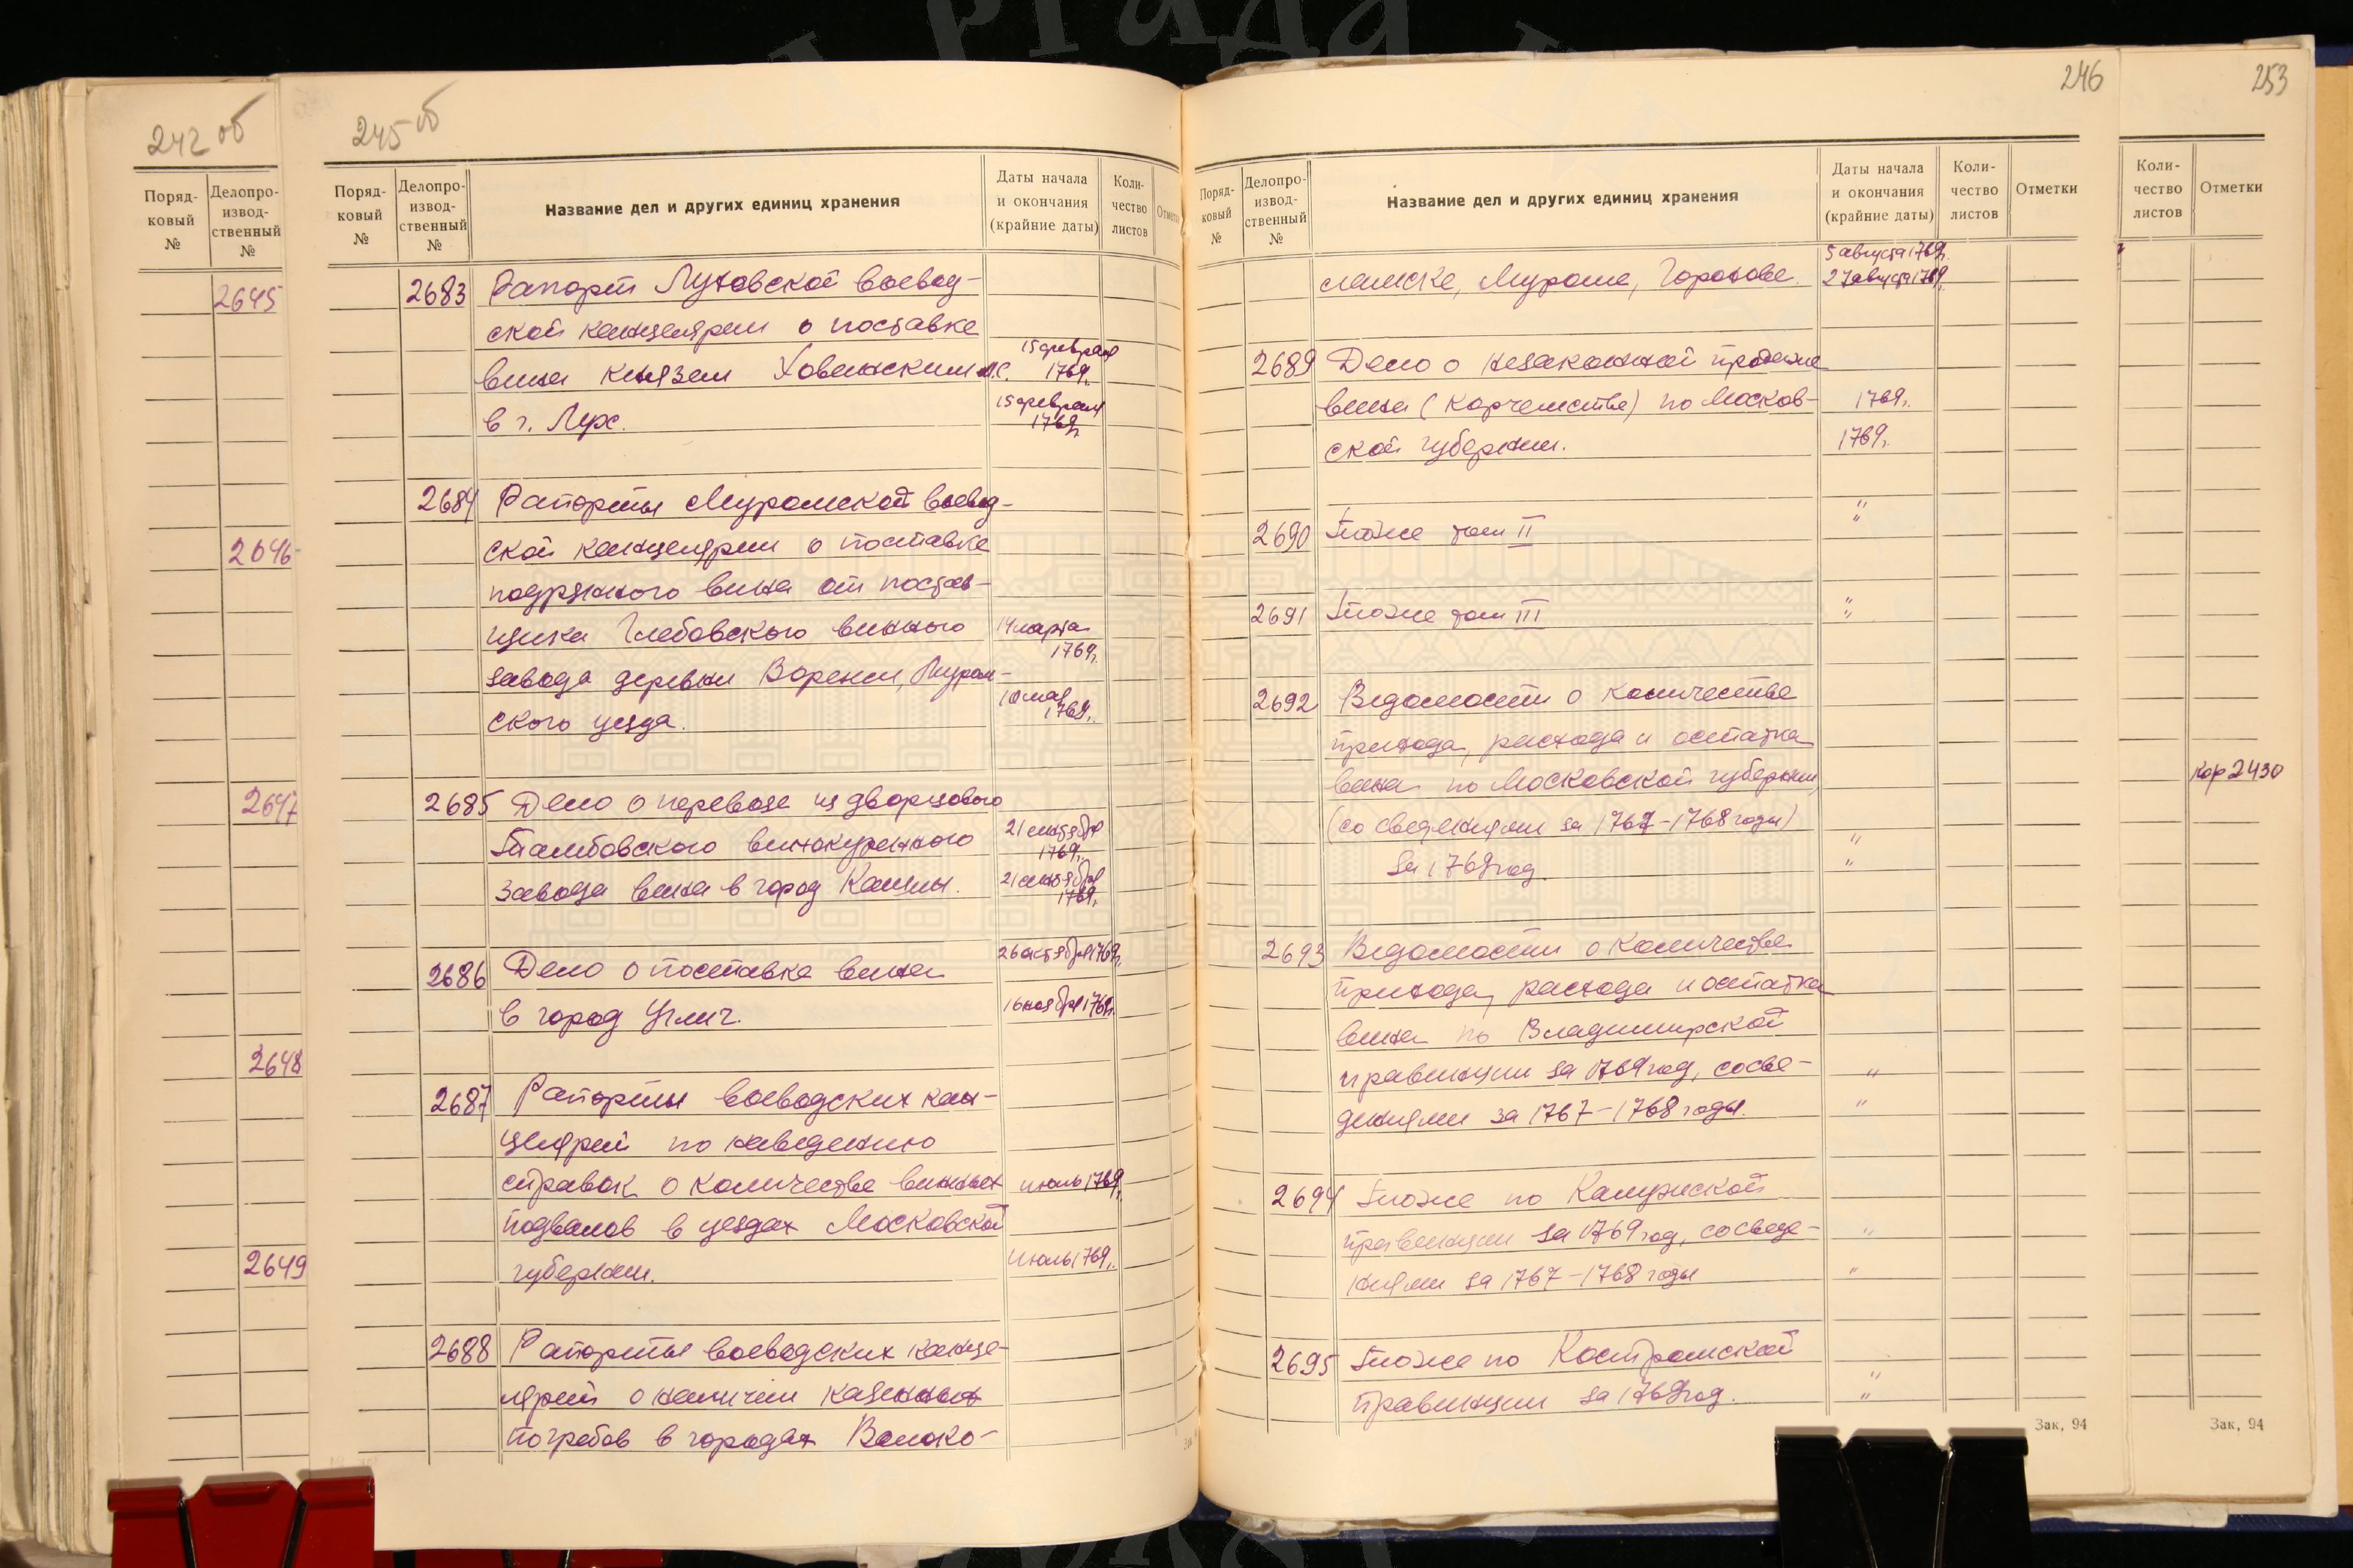 242 об
Поряд-
ковый
№
Делопро-
извод-
ственный
№
2645
2646
2647
2648
2649
245 об
Поряд-
ковый
№
Делопро-
извод-
ственный
№
Название дел и других единиц хранения
Даты начала
и окончания
(крайние даты)
Коли-
чество
листов
2683 Рапорт Луховской воевод-
ской канцелярии о поставке
вина князем Хованским А.С. 15 февраля 1769г.
в г. Лух. 15 февраля 1769г.
2684 Рапорты Муромской воевод-
ской канцелярии о поставке
подрядного вина от постав-
щика Глебовского винного 14 марта 1769г.
завода деревни Муром-
ского уезда. 10 мая 1769г.
2685 Дело о перевозе из дворцового
Тамбовского винокуренного 21 1769г.
завода вина в город Кашин. 21 1769г.
2686 Дело о поставке вина 26 октября 1769г.
в город Углич. 16 ноября 1769г.
2687 Рапорты воеводских кан-
целярий по наведению
справок о количестве винных июль 1769г.
подвалов в уездах Московской
губернии. июль 1769г.
2688 Рапорты воеводских канце-
лярий о наличии казенных
погребов в городах Волоко-
246
Поряд-
ковый
№
Делопро-
извод-
ственный
№
Название дел и других единиц хранения
Даты начала
и окончания
(крайние даты)
Коли-
чество
листов
Отметки
5 августа 1769г.
ламске, Муроме, Гороховце. 27 августа 1769г.
2689 Дело о незаконной продаже
вина (корчемстве) по Москов- 1769г.
ской губернии. 1769г.
2690 Тоже том II " "
2691 Тоже том III " "
2692 Ведомости о количестве
прихода, расхода и остатка
вина по Московской губернии,
(со сведениями за 1767-1768 годы) "
за 1769 год. "
2693 Ведомости о количестве
прихода, расхода и остатка
вина по Владимирской
правинции за 1769 год, со све- "
дениями за 1767-1768 годы. "
2694 Тоже по Калужской
правинции за 1769 год, со сведе- "
ниями за 1767-1768 годы "
2695 Тоже по Костромской "
правинции за 1769 год. "
Зак, 94
253
Коли-
чество
листов
Отметки
кор 2430
Зак, 94